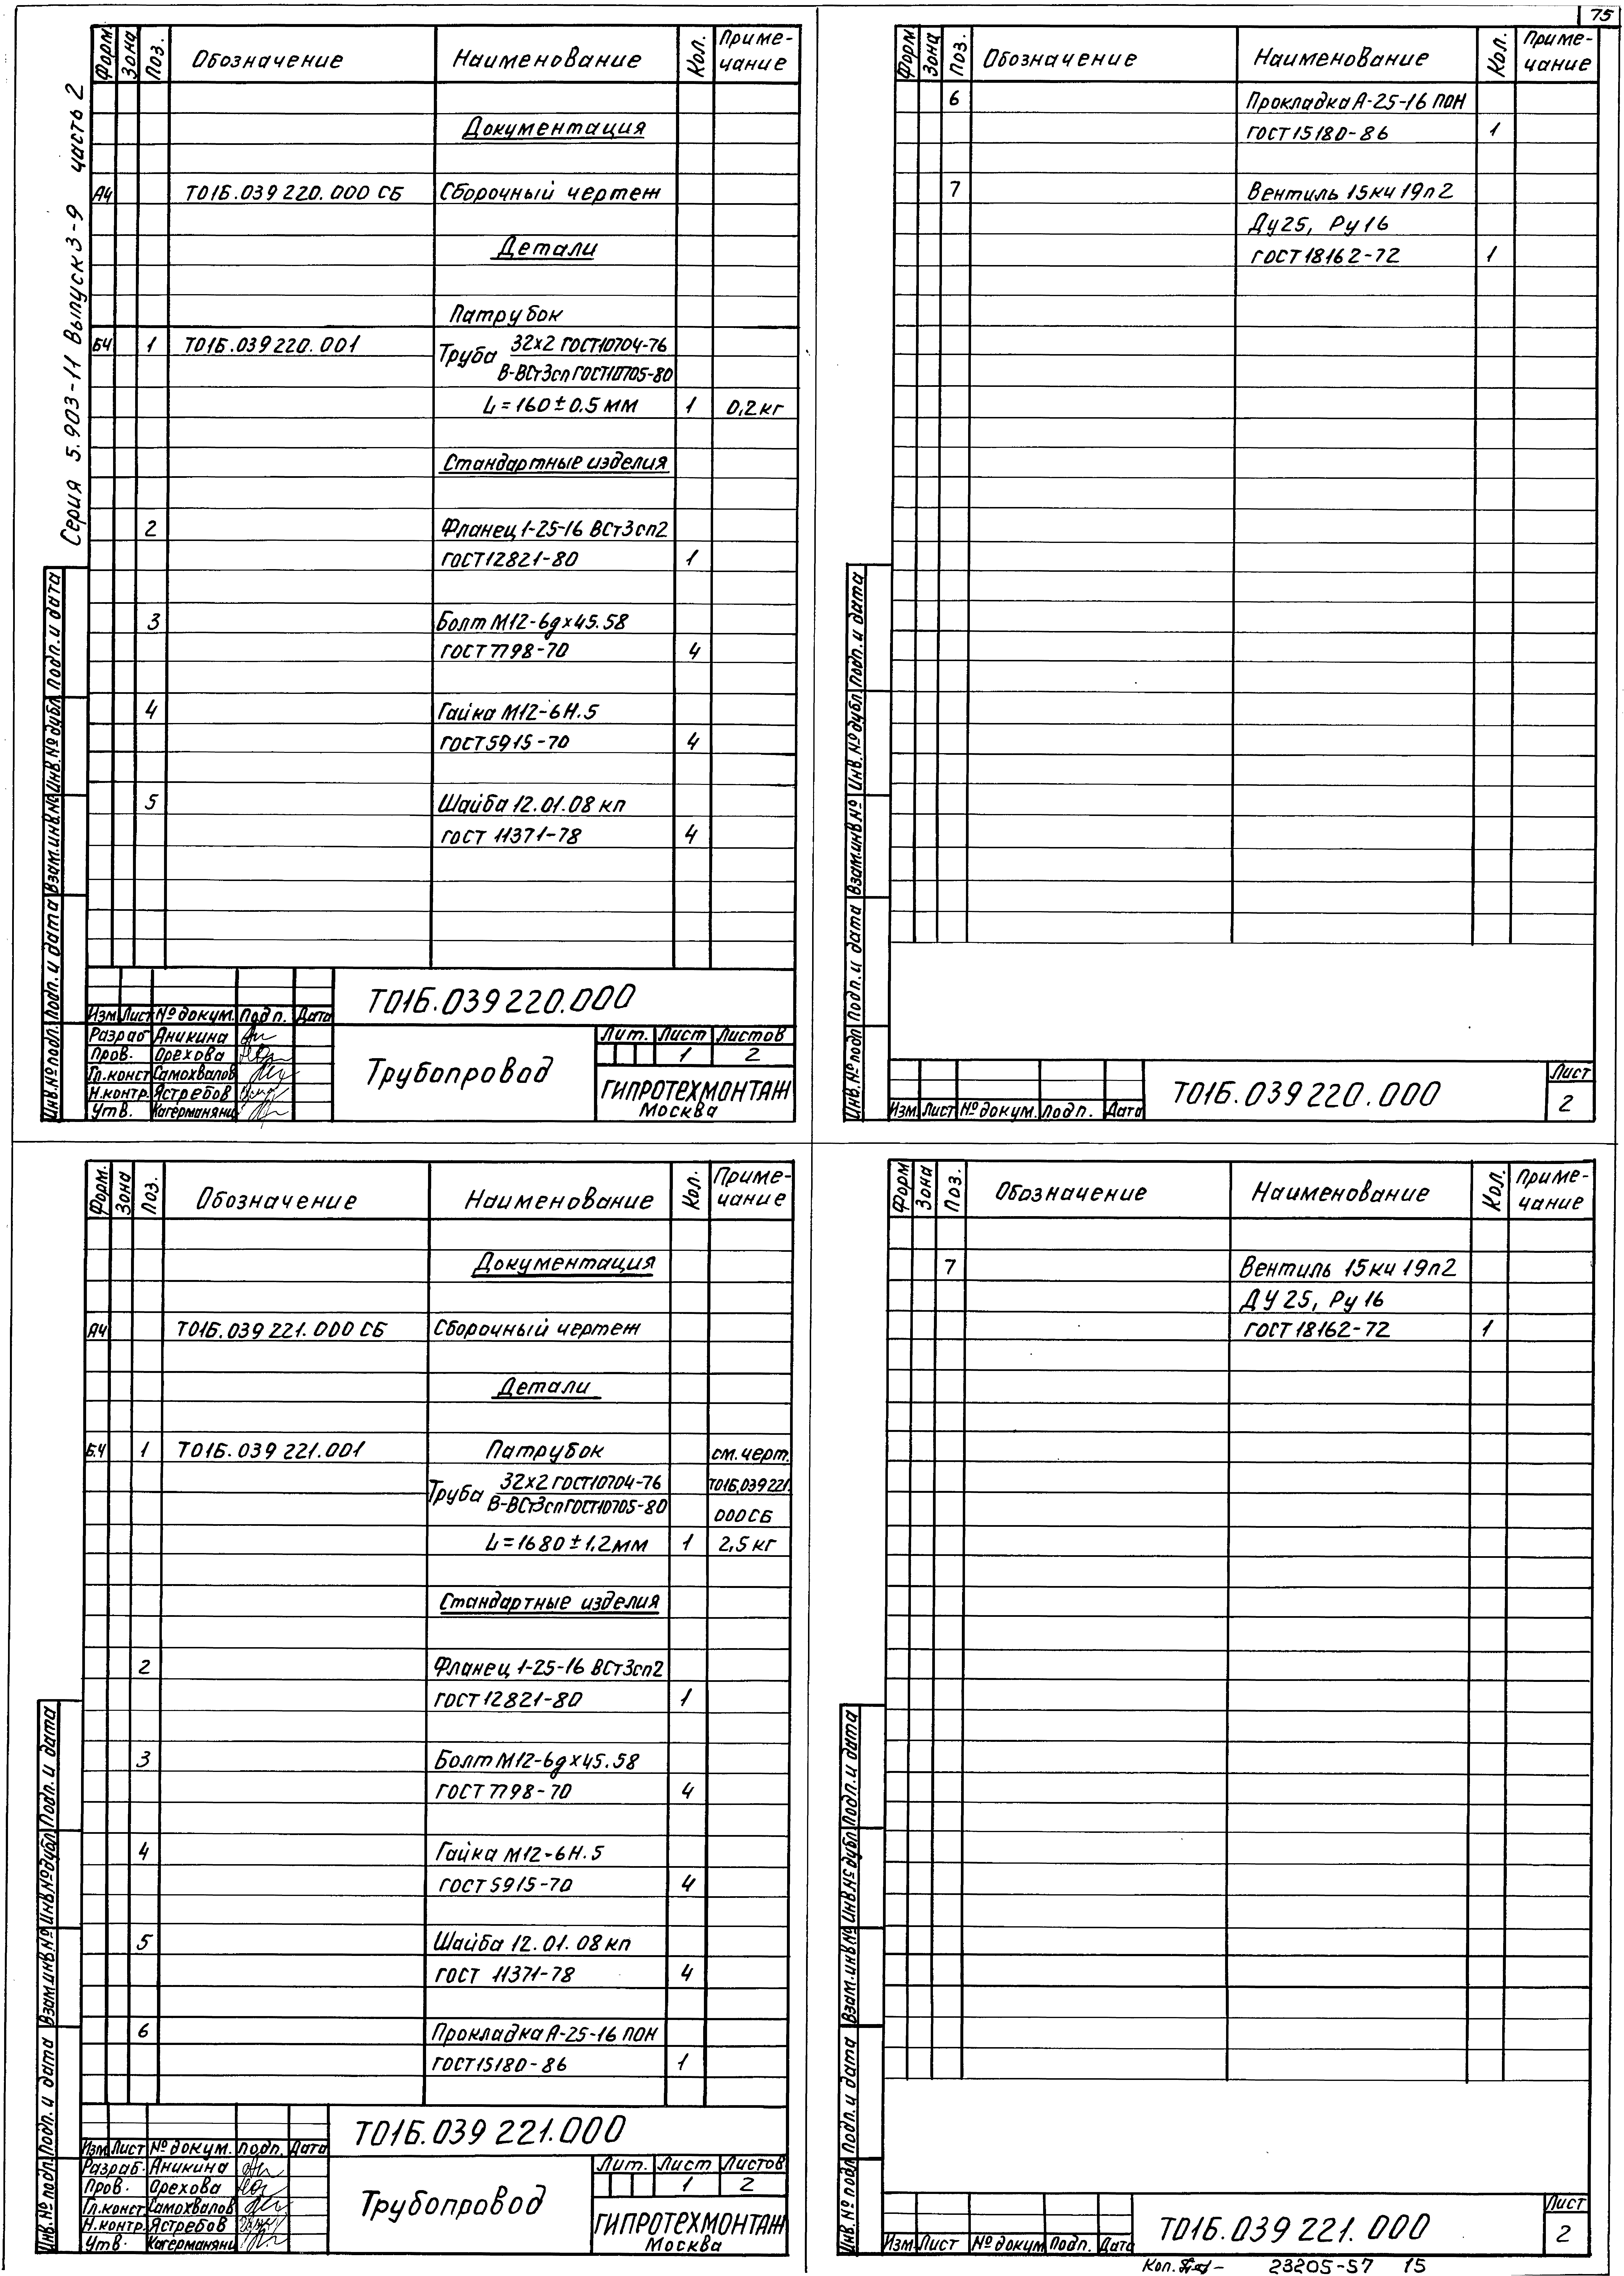 75
Серия 5.903-11 Выпуск 3-9 часть 2
Форм. Зона Поз. Обозначение Наименование Кол. Приме-
чание
Документация
А4 Т01Б.039 220.000 СБ Сборочный чертеж
Детали
Патрубок
БЧ 1 Т01Б.039 220.001 Труба 32х2 ГОСТ10704-76
В-ВСт3сп ГОСТ10705-80
L=160±0.5 мм 1 0,2кг
Стандартные изделия
2 Фланец 1-25-16 ВСт3сп2
ГОСТ12821-80 1
3 Болт М12-6gх45.58
ГОСТ7798-70 4
4 Гайка М12-6Н.5
ГОСТ5915-70 4
5 Шайба 12.01.08 кп
ГОСТ 11371-78 4
Инв.№ подл. Подп. и дата Взам.инв.№ Инв.№ дубл. Подп. и дата
Т01Б.039 220.000
Изм. Лист № докум. Подп. Дата
Разраб. Аникина
Пров. Орехова
Гл.конст. Самохвалов
Н.контр. Ястребов
Утв. Кагерманянц
Трубопровод
Лит. Лист Листов
1 2
ГИПРОТЕХМОНТАЖ
Москва
Форм Зона Поз. Обозначение Наименование Кол. Приме-
чание
6 Прокладка А-25-16 ПОН
ГОСТ15180-86 1
7 Вентиль 15кч 19п2
Ду25, Ру16
ГОСТ18162-72 1
Инв.№ подл Подп. и дата Взам.инв № Инв.№ дубл. Подп. и дата
Изм. Лист № докум. Подп. Дата
Т01Б.039 220.000
Лист
2
Форм. Зона Поз. Обозначение Наименование Кол. Приме-
чание
Документация
А4 Т01Б.039 221.000 СБ Сборочный чертеж
Детали
Б.Ч 1 Т01Б.039 221.001 Патрубок см.черт.
Труба 32х2 ГОСТ10704-76 Т01Б.039 221.
В-ВСт3сп ГОСТ10705-80 000 СБ
L=1680±1,2мм 1 2,5 кг
Стандартные изделия
2 Фланец 1-25-16 ВСт3сп2
ГОСТ12821-80 1
3 Болт М12-6gх45.58
ГОСТ7798-70 4
4 Гайка М12-6Н.5
ГОСТ5915-70 4
5 Шайба 12.01.08 кп
ГОСТ 11371-78 4
6 Прокладка А-25-16 ПОН
ГОСТ15180-86 1
Инв.№ подл. Подп. и дата Взам.инв.№ Инв.№ дубл. Подп. и дата
Т01Б.039 221.000
Изм. Лист № докум. Подп. Дата
Разраб. Аникина
Пров. Орехова
Гл.конст. Самохвалов
Н.контр. Ястребов
Утв. Кагерманянц
Трубопровод
Лит. Лист Листов
1 2
ГИПРОТЕХМОНТАЖ
Москва
Форм Зона Поз. Обозначение Наименование Кол. Приме-
чание
7 Вентиль 15кч 19п2
ДУ 25, Ру 16
ГОСТ18162-72 1
Инв.№ подл Подп. и дата Взам.инв.№ Инв.№ дубл. Подп. и дата
Изм. Лист № докум. Подп. Дата
Т01Б.039 221.000
Лист
2
Коп. 23205-57 15